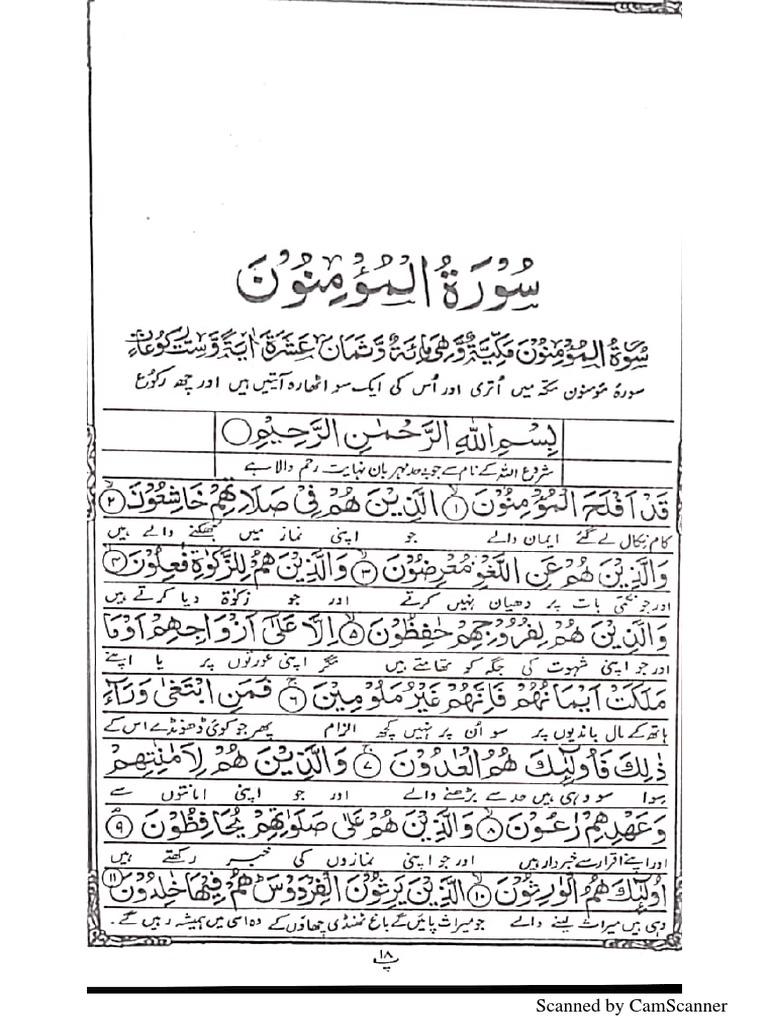 سُوْرَةُ الْمُؤْمِنُوْنَ
سُوْرَةُ الْمُؤْمِنُوْنَ مَكِّيَّةٌ وَّهِيَ مِائَةٌ وَّثَمَانَ عَشَرَةَ اٰيَةً وَّسِتُّ رَكُوْعَاتٍ
سورۂ مؤمنون مکہ میں اُتری اور اُس کی ایک سو اٹھارہ آیتیں ہیں اور چھ رکوع
بِسْمِ اللّٰهِ الرَّحْمٰنِ الرَّحِيْمِ
شروع اللہ کے نام سے جو بے حد مہربان نہایت رحم والا ہے
قَدْ اَفْلَحَ الْمُؤْمِنُوْنَ ۱ الَّذِيْنَ هُمْ فِىْ صَلَاتِهِمْ خَاشِعُوْنَ ۲
کام نکال لے گئے ایمان والے جو اپنی نماز میں جھکنے والے ہیں
وَالَّذِيْنَ هُمْ عَنِ اللَّغْوِ مُعْرِضُوْنَ ۳ وَالَّذِيْنَ هُمْ لِلزَّكٰوةِ فٰعِلُوْنَ ۴
اور جو نکمی بات پر دھیان نہیں کرتے اور جو زکوٰۃ دیا کرتے ہیں
وَالَّذِيْنَ هُمْ لِفُرُوْجِهِمْ حٰفِظُوْنَ ۵ اِلَّا عَلٰٓى اَزْوَاجِهِمْ اَوْ مَا
اور جو اپنی شہوت کی جگہ کو تھامتے ہیں مگر اپنی عورتوں پر یا اپنے
مَلَكَتْ اَيْمَانُهُمْ فَاِنَّهُمْ غَيْرُ مَلُوْمِيْنَ ۶ فَمَنِ ابْتَغٰى وَرَآءَ
ہاتھ کے مال باندیوں پر سو اُن پر نہیں کچھ الزام پھر جو کوئی ڈھونڈے اس کے
ذٰلِكَ فَاُولٰٓئِكَ هُمُ الْعٰدُوْنَ ۷ وَالَّذِيْنَ هُمْ لِاَمٰنٰتِهِمْ
سوا سو وہی ہیں حد سے بڑھنے والے اور جو اپنی امانتوں سے
وَعَهْدِهِمْ رٰعُوْنَ ۸ وَالَّذِيْنَ هُمْ عَلٰى صَلَوٰتِهِمْ يُحَافِظُوْنَ ۹
اور اپنے اقرار سے خبردار ہیں اور جو اپنی نمازوں کی خبر رکھتے ہیں
اُولٰٓئِكَ هُمُ الْوٰرِثُوْنَ ۱۰ الَّذِيْنَ يَرِثُوْنَ الْفِرْدَوْسَ هُمْ فِيْهَا خٰلِدُوْنَ ۱۱
وہی ہیں میراث لینے والے جو میراث پائیں گے باغ ٹھنڈی چھاؤں کے وہ اسی میں ہمیشہ رہیں گے۔
۱۸
پ
Scanned by CamScanner